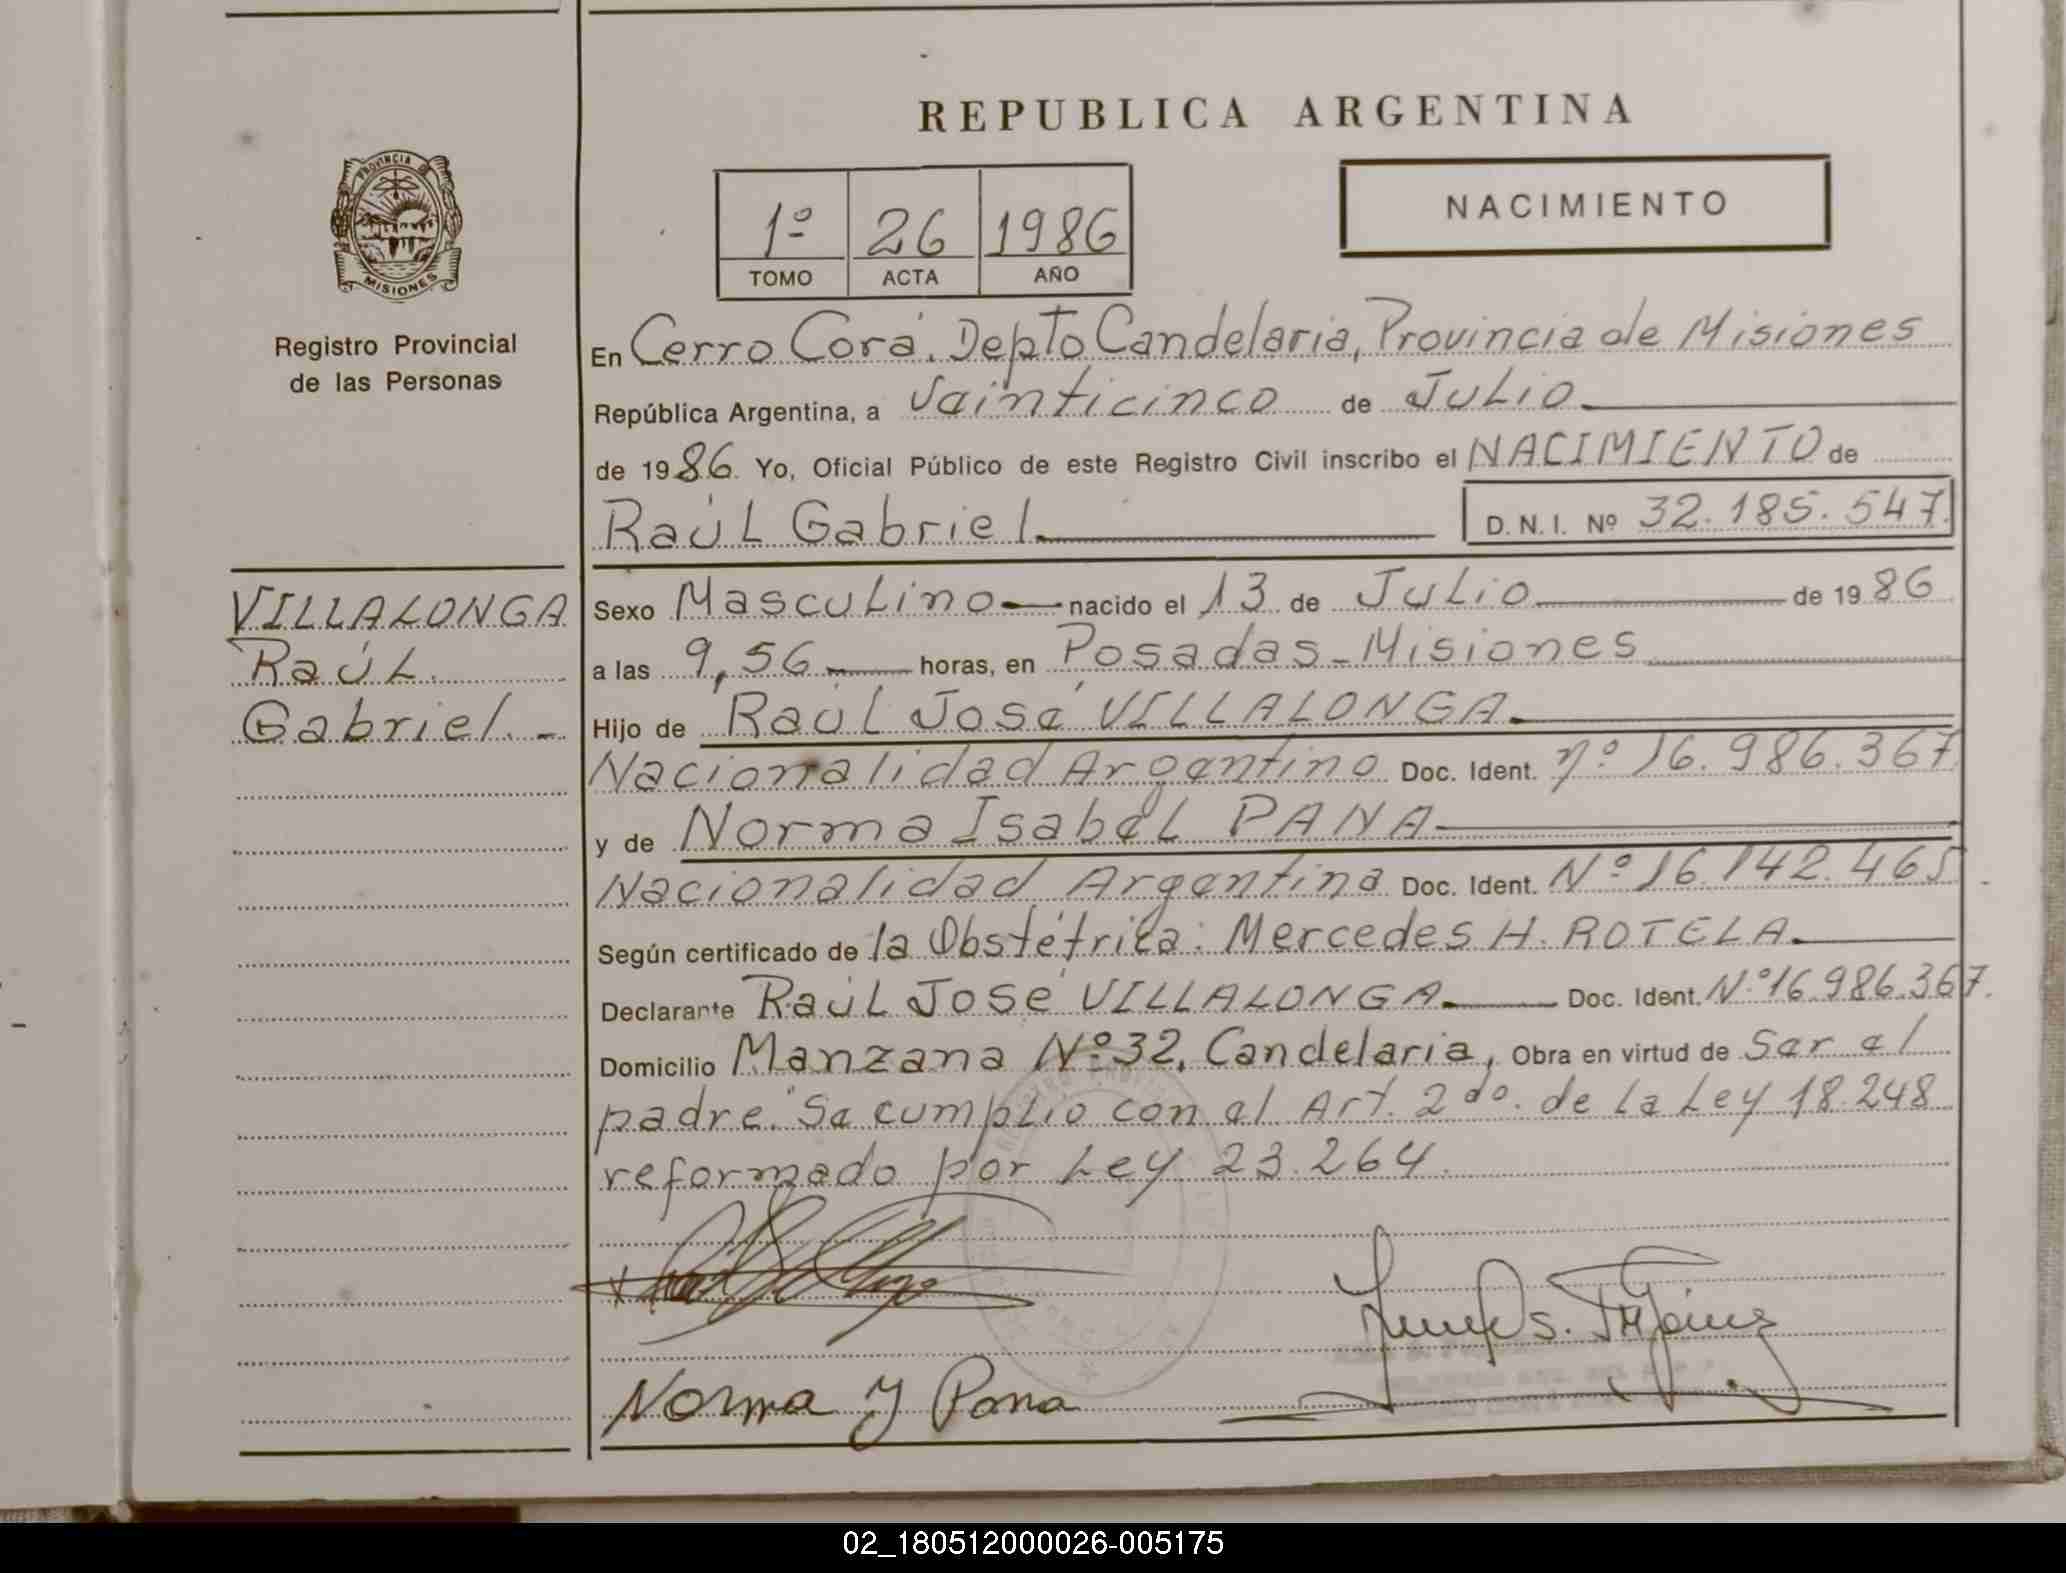 REPUBLICA ARGENTINA
NACIMIENTO
1º 26 1986
TOMO ACTA AÑO
PROVINCIA
MISIONES
Registro Provincial
de las Personas
En Cerro Corá. Depto Candelaria, Provincia de Misiones
República Argentina, a Veinticinco de Julio
de 1986. Yo, Oficial Público de este Registro Civil inscribo el NACIMIENTO de
Raúl Gabriel
D.N.I. Nº 32.185.547.
VILLALONGA
Raúl
Gabriel.-
Sexo Masculino nacido el 13 de Julio de 1986
a las 9,56 horas, en Posadas-Misiones
Hijo de Raúl José VILLALONGA.
Nacionalidad Argentino Doc. Ident. nº 16.986.367
y de Norma Isabel PANA
Nacionalidad Argentina Doc. Ident. Nº 16.142.465
Según certificado de la Obstétrica: Mercedes H. ROTELA.
Declarante Raúl José VILLALONGA. Doc. Ident. Nº 16.986.367.
Domicilio Manzana Nº 32, Candelaria, Obra en virtud de Ser el
padre. Se cumplio con el Art. 2do. de la Ley 18.248
reformado por Ley 23.264.
Norma Y Pana
02_180512000026-005175